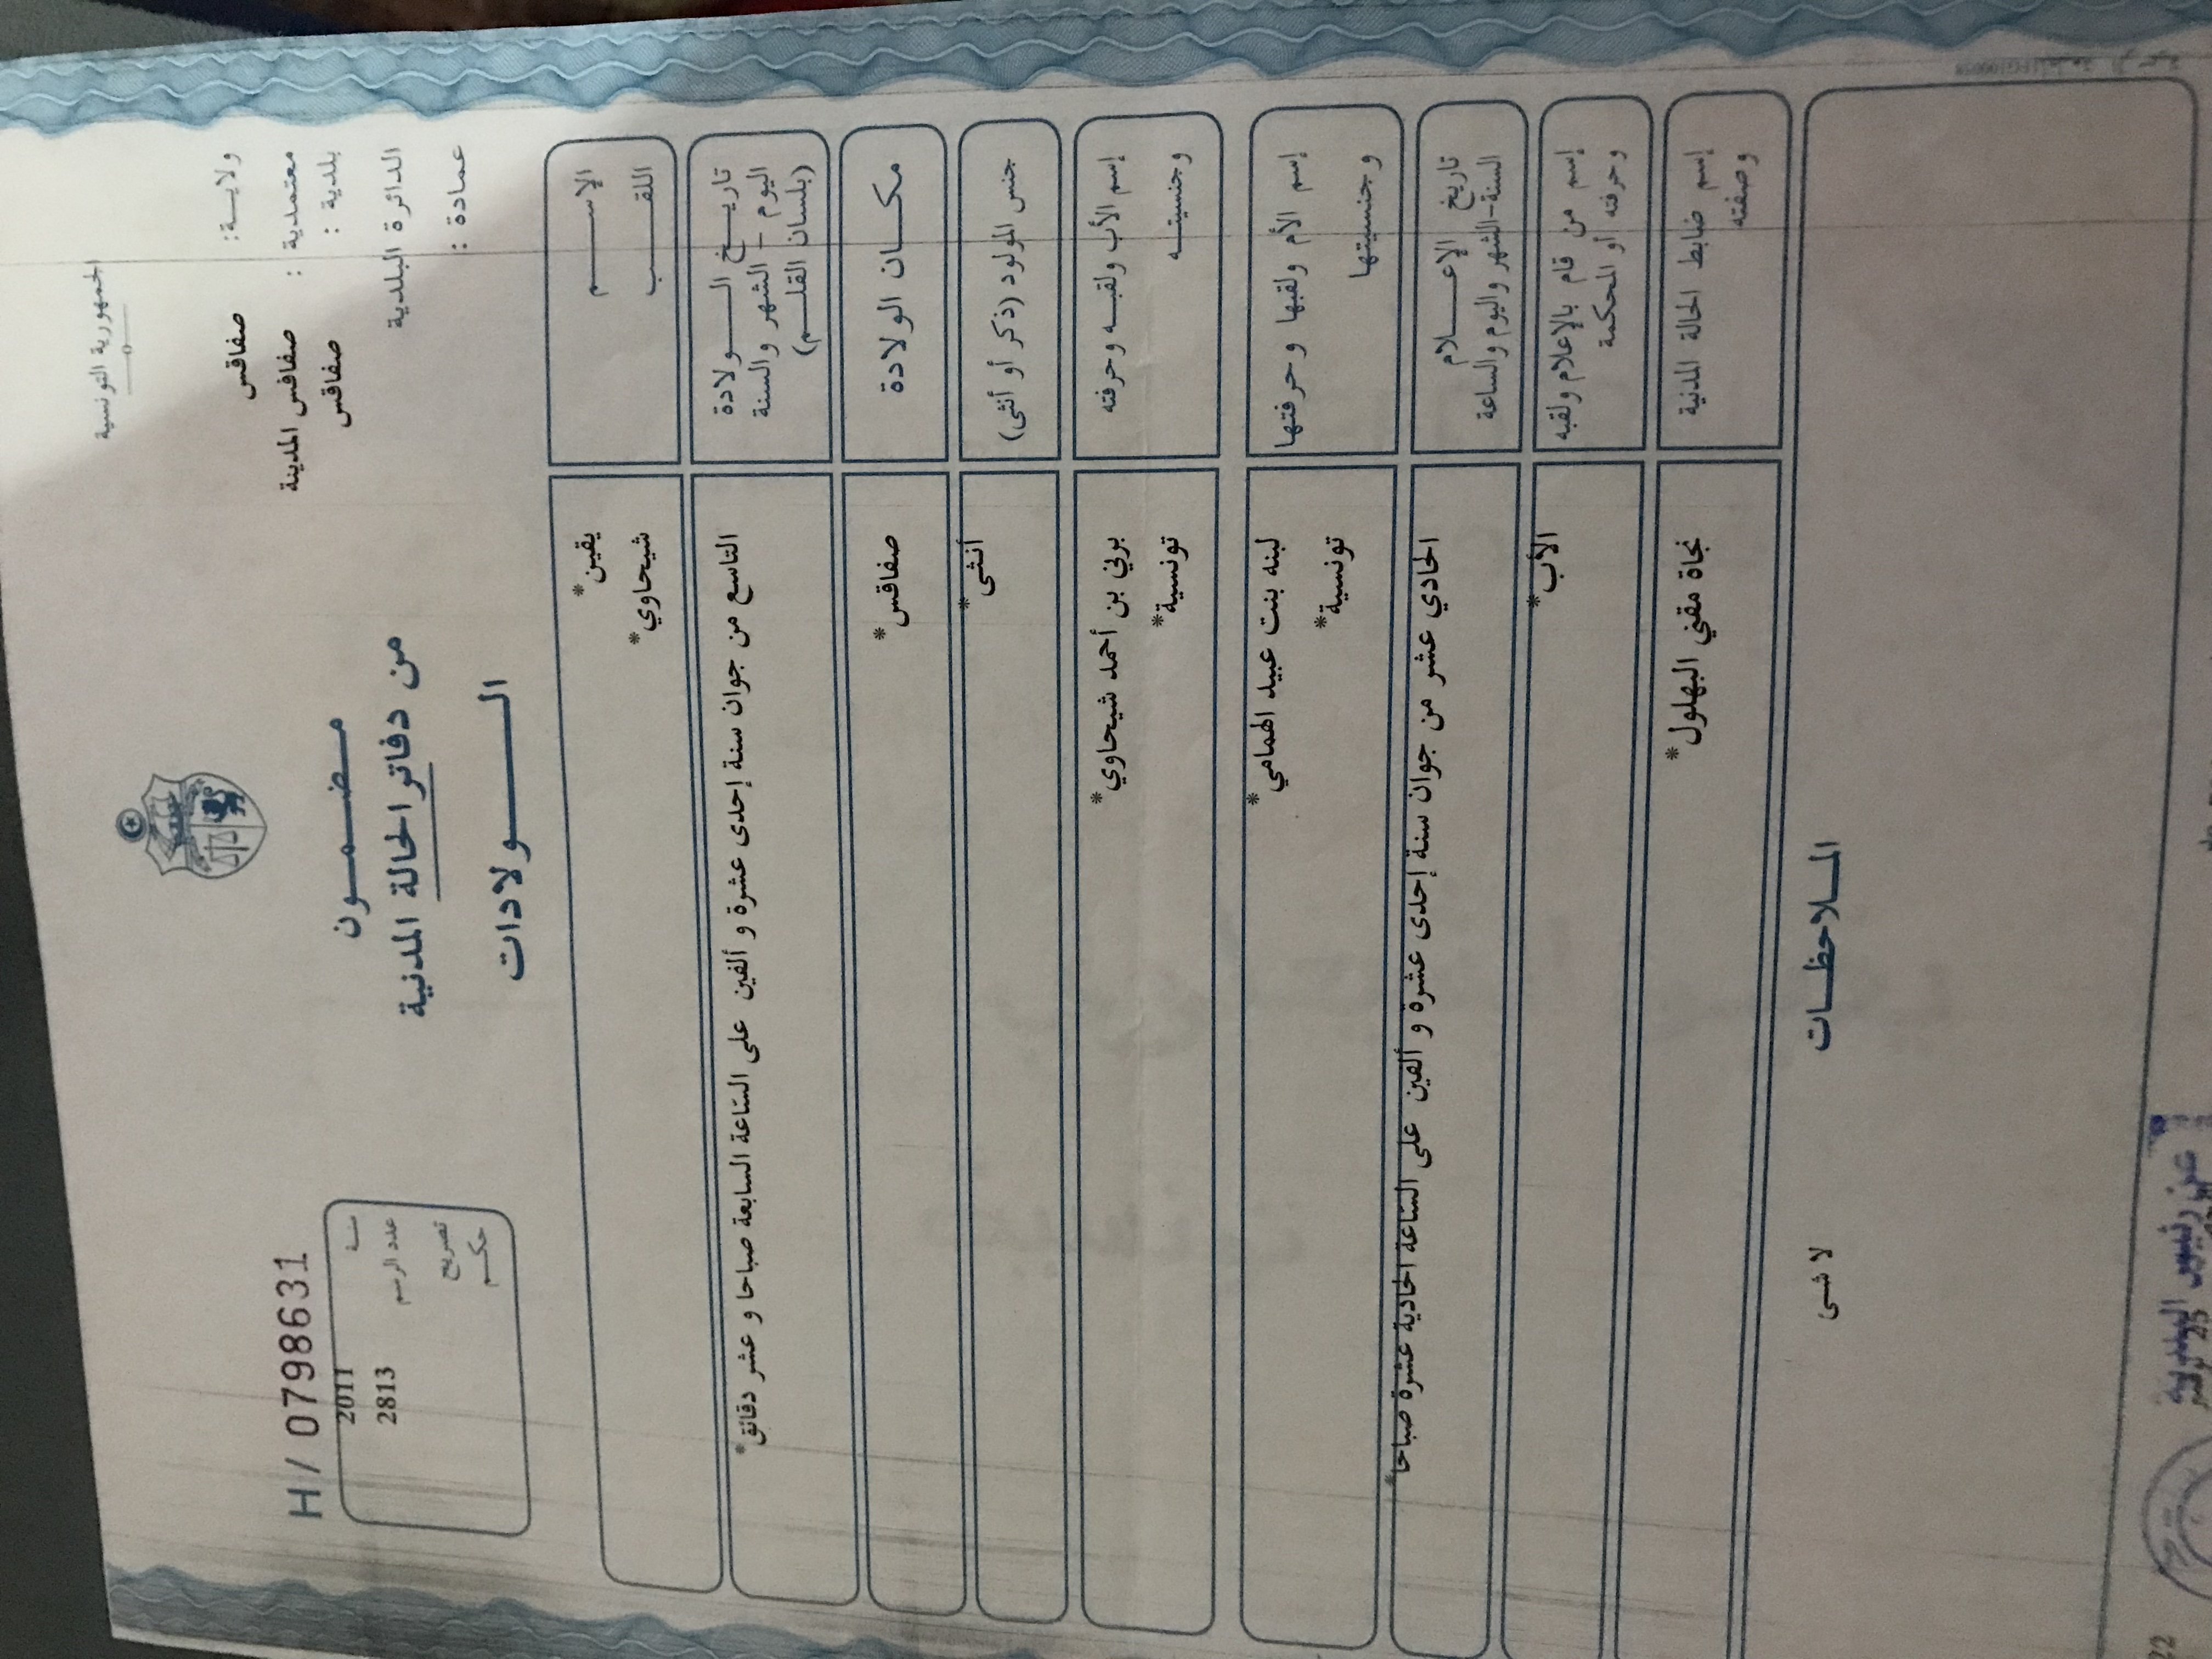 الجمهورية التونسية
ولايـــة: صفاقس
معتمدية : صفاقس المدينة
بلدية : صفاقس
الدائرة البلدية
عمادة :
مـــضـــمـــون
من دفاتر الحالة المدنية
الـــــولادات
H/ 0798631
سنـة 2011
عدد الرسم 2813
تصريح
حكـم
الإســـــم يقين*
اللقـــــب شيحاوي*
تاريـــخ الـــــولادة
اليوم – الشهر والسنة
(بلسان القلـــم)
التاسع من جوان سنة إحدى عشرة و ألفين على الساعة السابعة صباحا و عشر دقائق*
مكـــان الولادة صفاقس*
جنس المولود (ذكر أو أنثى) أنثى*
إسم الأب ولقبـــه وحرفته برني بن أحمد شيحاوي*
وجنسيتـــه تونسية*
إسم الأم ولقبها وحرفتها لبنه بنت عبيد الهمامي*
وجنسيتها تونسية*
تاريخ الإعـــــلام
السنة-الشهر واليوم والساعة
الحادي عشر من جوان سنة إحدى عشرة و ألفين على الساعة الحادية عشرة صباحا*
إسم من قام بالإعلام ولقبه
وحرفته أو المحكمة
الأب*
إسم ضابط الحالة المدنية
وصفته
نجاة مقني البهلول*
المـــلاحظـــات
لا شئ
عن رئيس البلدية
25